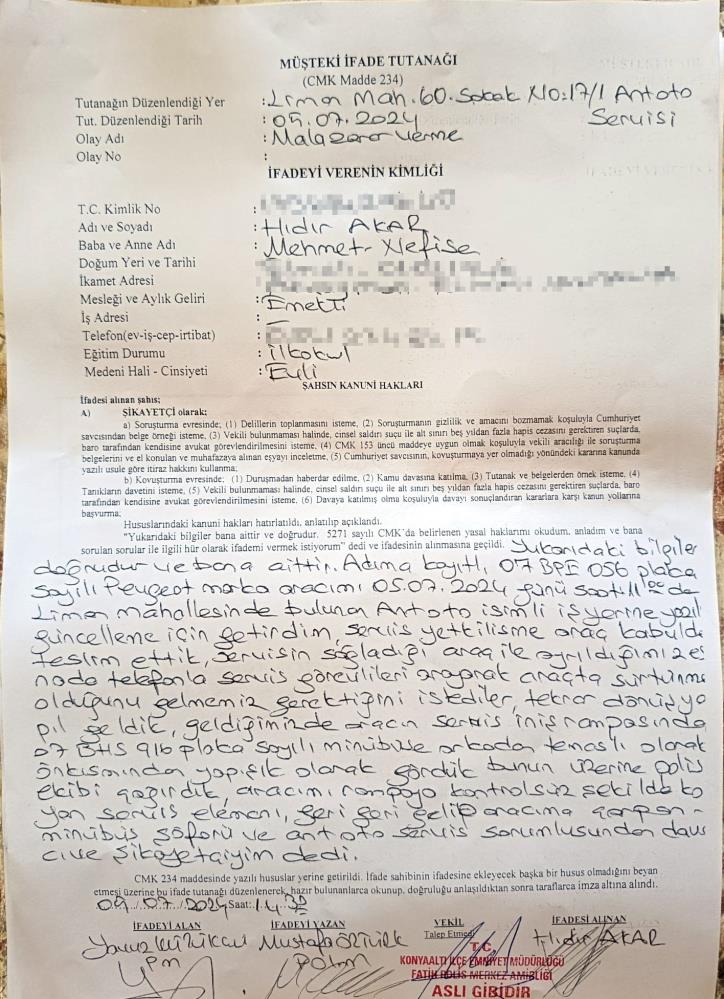 MÜŞTEKİ İFADE TUTANAĞI
(CMK Madde 234)
Tutanağın Düzenlendiği Yer :Liman Mah. 60. Sokak No:17/1 Antoto Servisi
Tut. Düzenlendiği Tarih :05.07.2024
Olay Adı :Mala zarar verme
Olay No :
İFADEYİ VERENİN KİMLİĞİ
T.C. Kimlik No :
Adı ve Soyadı :Hıdır AKAR
Baba ve Anne Adı :Mehmet- Nefise
Doğum Yeri ve Tarihi :
İkamet Adresi :
Mesleği ve Aylık Geliri :Emekli
İş Adresi : —
Telefon(ev-iş-cep-irtibat) :
Eğitim Durumu :ilkokul
Medeni Hali - Cinsiyeti :Evli
ŞAHSIN KANUNİ HAKLARI
İfadesi alınan şahıs;
A) ŞİKAYETÇİ olarak;
a) Soruşturma evresinde; (1) Delillerin toplanmasını isteme, (2) Soruşturmanın gizlilik ve amacını bozmamak koşuluyla Cumhuriyet
savcısından belge örneği isteme, (3) Vekili bulunmaması halinde, cinsel saldırı suçu ile alt sınırı beş yıldan fazla hapis cezasını gerektiren suçlarda,
baro tarafından kendisine avukat görevlendirilmesini isteme, (4) CMK 153 üncü maddeye uygun olmak koşuluyla vekili aracılığı ile soruşturma
belgelerini ve el konulan ve muhafazaya alınan eşyayı inceletme, (5) Cumhuriyet savcısının, kovuşturmaya yer olmadığı yönündeki kararına kanunda
yazılı usule göre itiraz hakkını kullanma;
b) Kovuşturma evresinde: (1) Duruşmadan haberdar edilme, (2) Kamu davasına katılma, (3) Tutanak ve belgelerden örnek isteme, (4)
Tanıkların davetini isteme, (5) Vekili bulunmaması halinde, cinsel saldırı suçu ile alt sınırı beş yıldan fazla hapis cezasını gerektiren suçlarda, baro
tarafından kendisine avukat görevlendirilmesini isteme, (6) Davaya katılmış olma koşuluyla davayı sonuçlandıran kararlara karşı kanun yollarına
başvurma;
Hususlarındaki kanuni hakları hatırlatıldı, anlatılıp açıklandı.
"Yukarıdaki bilgiler bana aittir ve doğrudur. 5271 sayılı CMK'da belirlenen yasal haklarımı okudum, anladım ve bana
sorulan sorular ile ilgili hür olarak ifademi vermek istiyorum" dedi ve ifadesinin alınmasına geçildi. Yukarıdaki bilgiler
doğrudur ve bana aittir. Adıma kayıtlı, 07 BPE 056 plaka
sayılı Peugeot marka aracımı 05.07.2024 günü saat:11:00 de
Liman Mahallesinde bulunan Antoto isimli işyerine yazıl
güncelleme için getirdim, servis yetkilisine araç kabulde
teslim ettik, servisin sağladığı araç ile ayrıldığımız es
nada telefonla servis görevlileri arayarak araçta sürtünme
olduğunu gelmemiz gerektiğini istediler, tekrar dönüş ya
pıl geldik, geldiğimizde aracın servis iniş rampasında
07 BHS 916 plaka sayılı minübüse arkadan temaslı olarak
ön kısmından yapışık olarak gördük bunun üzerine polis
ekibi çağırdık, aracımı rampaya kontrolsüz şekilde ko
yan servis elemanı, geri geri gelip aracıma çarpan
minübüs şoförü ve antoto servis sorumlusundan dava
cı ve şikayetçiyim dedi.
CMK 234 maddesinde yazılı hususlar yerine getirildi. İfade sahibinin ifadesine ekleyecek başka bir husus olmadığını beyan
etmesi üzerine bu ifade tutanağı düzenlenerek, hazır bulunanlarca okunup, doğruluğu anlaşıldıktan sonra taraflarca imza altına alındı.
05/07/2024 Saat:14:
İFADEYİ ALAN İFADEYİ YAZAN VEKİL İFADESİ ALINAN
Talep Etmedi
Yavuz Mustafa ÖZTÜRK Hıdır AKAR
PM
T.C.
KONYAALTI İLÇE EMNİYET MÜDÜRLÜĞÜ
FATİH POLİS MERKEZ AMİRLİĞİ
ASLI GİBİDİR